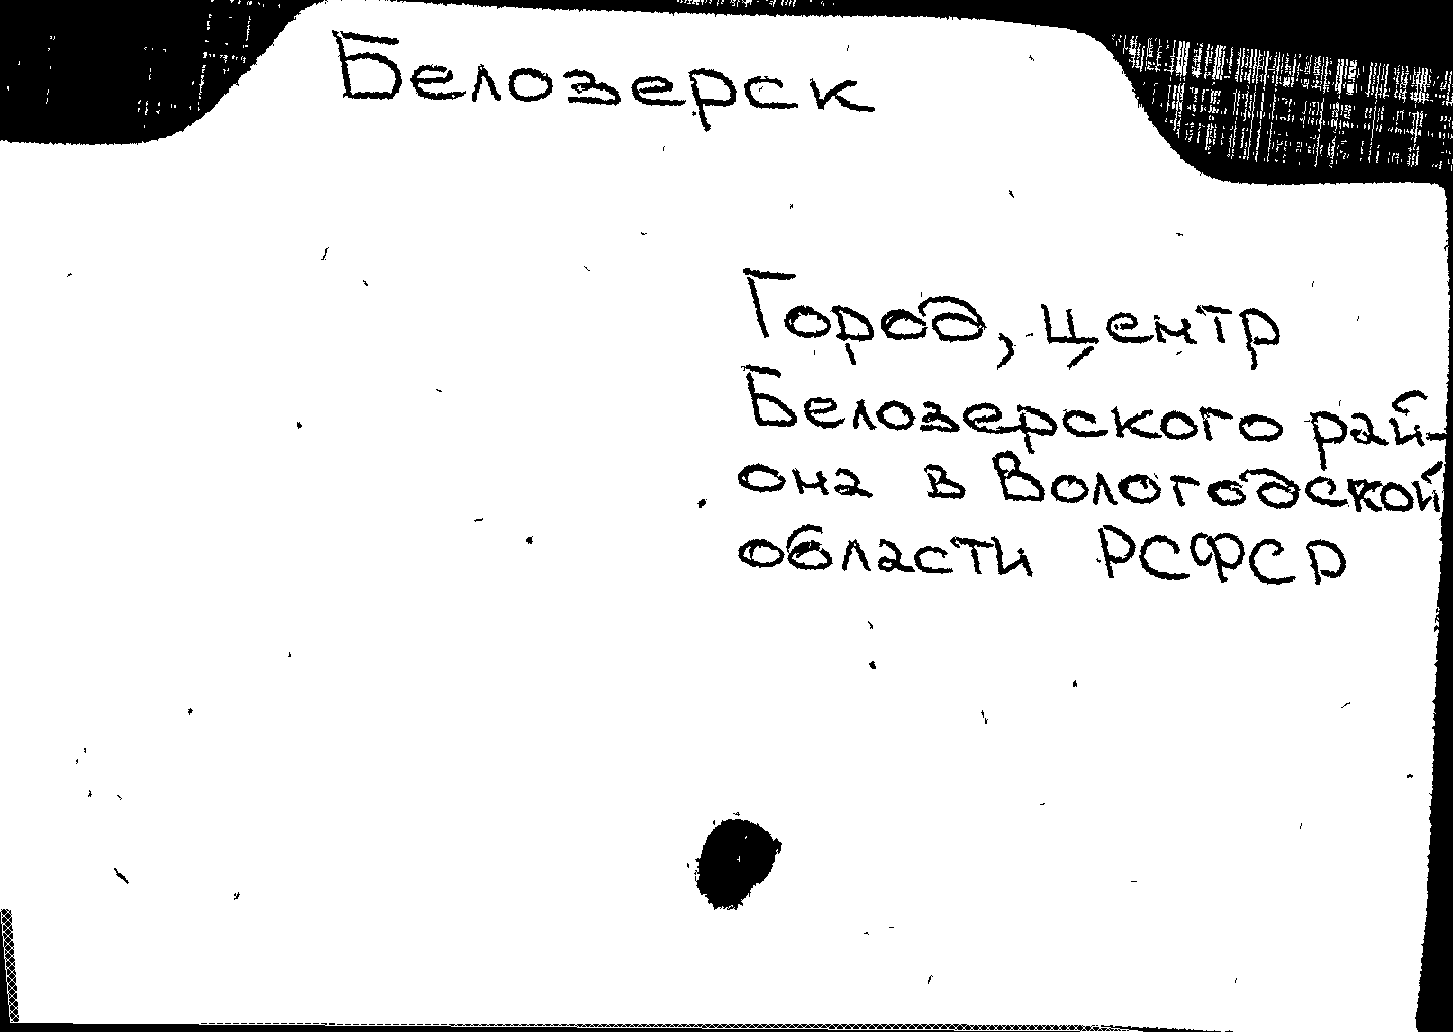 Белозерск
Город, центр
Белозерского рай-
она в Вологодской
области РСФСР